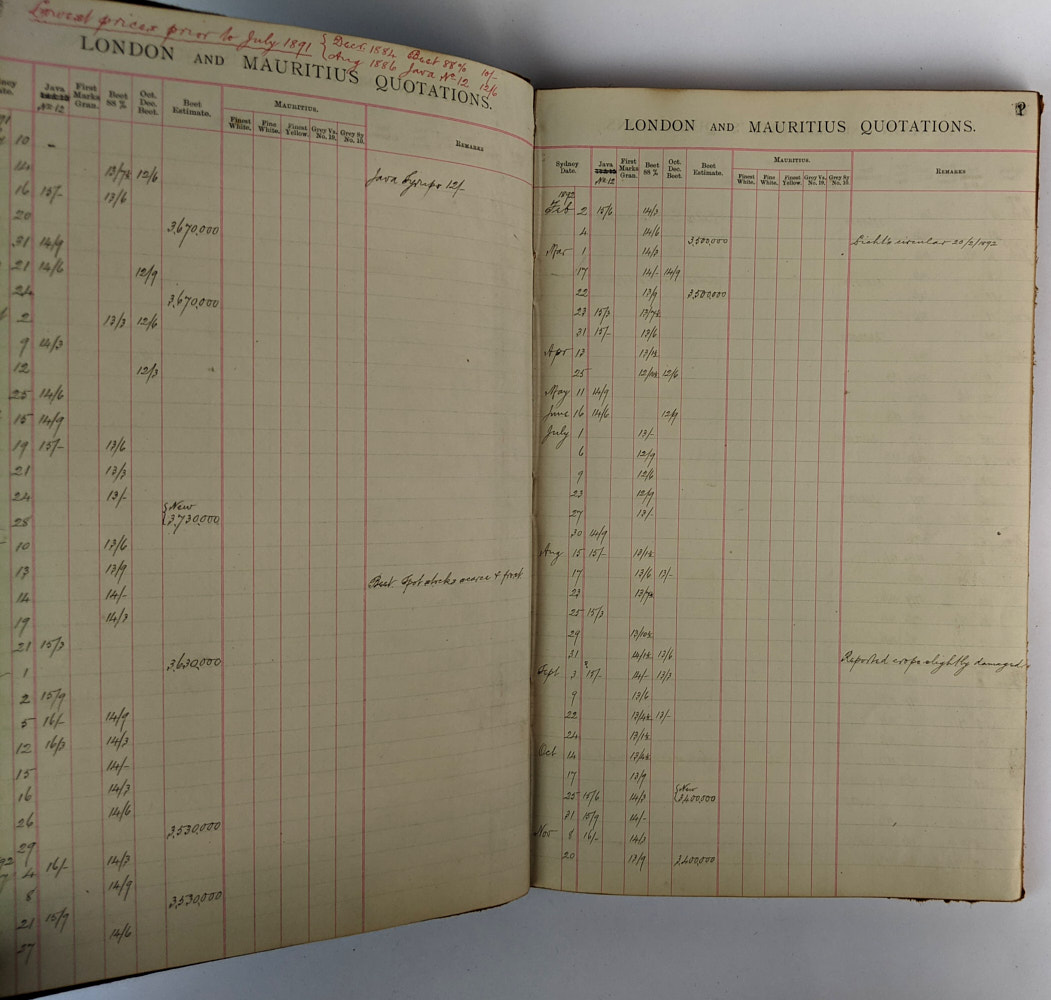 Lowest prices prior to July 1891 { Decr 1884 Beet 88% 10/-
{ Aug 1886 Java No 12 12/6
LONDON AND MAURITIUS QUOTATIONS.
Java No 12 First Marks Gran. Beet 88 % Oct. Dec. Beet. Beet Estimate. MAURITIUS. REMARKS
Finest White. Fine White. Finest Yellow. Grey Vs. No. 10. Grey Sy No. 10.
10 -
14 13/7½ 12/6 Java Syrups 12/-
16 15/- 13/6
20 3,670,000
31 14/9
21 14/6 12/9
24 3,670,000
2 13/3 12/6
9 14/3
12 12/3
25 14/6
15 14/9
19 15/- 13/6
21 13/3
24 13/-
28 { New 3,730,000
10 13/6
13 13/9 Beet Spot stocks scarce & firm
14 14/-
19 14/3
21 15/3
1 3,630,000
2 15/9
5 16/- 14/9
12 16/3 14/3
15 14/-
16 14/3
26 14/6
29 3,530,000
4 16/- 14/3
8 14/9
21 15/9 3,530,000
27 14/6
LONDON AND MAURITIUS QUOTATIONS.
Sydney Date. Java No 12 First Marks Gran. Beet 88 % Oct. Dec. Beet. Beet Estimate. MAURITIUS. REMARKS
Finest White. Fine White. Finest Yellow. Grey Vs. No. 10. Grey Sy No. 10.
1892
Feb 2 15/6 14/3
4 14/6 3,500,000 Licht's circular 20/2/1892
Mar 1 14/3
17 14/- 14/9
22 13/9 3,500,000
23 15/3 13/7½
31 15/- 13/6
Apr 13 13/1½
25 12/10½ 12/6
May 11 14/9
June 16 14/6 12/9
July 1 13/-
6 12/9
9 12/6
23 12/9
27 13/-
30 14/9
Aug 15 15/- 13/1½
17 13/6 13/-
23 13/7½
25 15/3
29 13/10½
31 14/1½ 13/6 Reported crops slightly damaged
Sept 3 15/- 14/- 13/3
9 13/6
22 13/4½ 13/-
24 13/1½
Oct 14 13/4½
17 13/9
25 15/6 14/3 { New 3,400,000
31 15/9 14/-
Nov 8 16/- 14/3
20 13/9 3,400,000